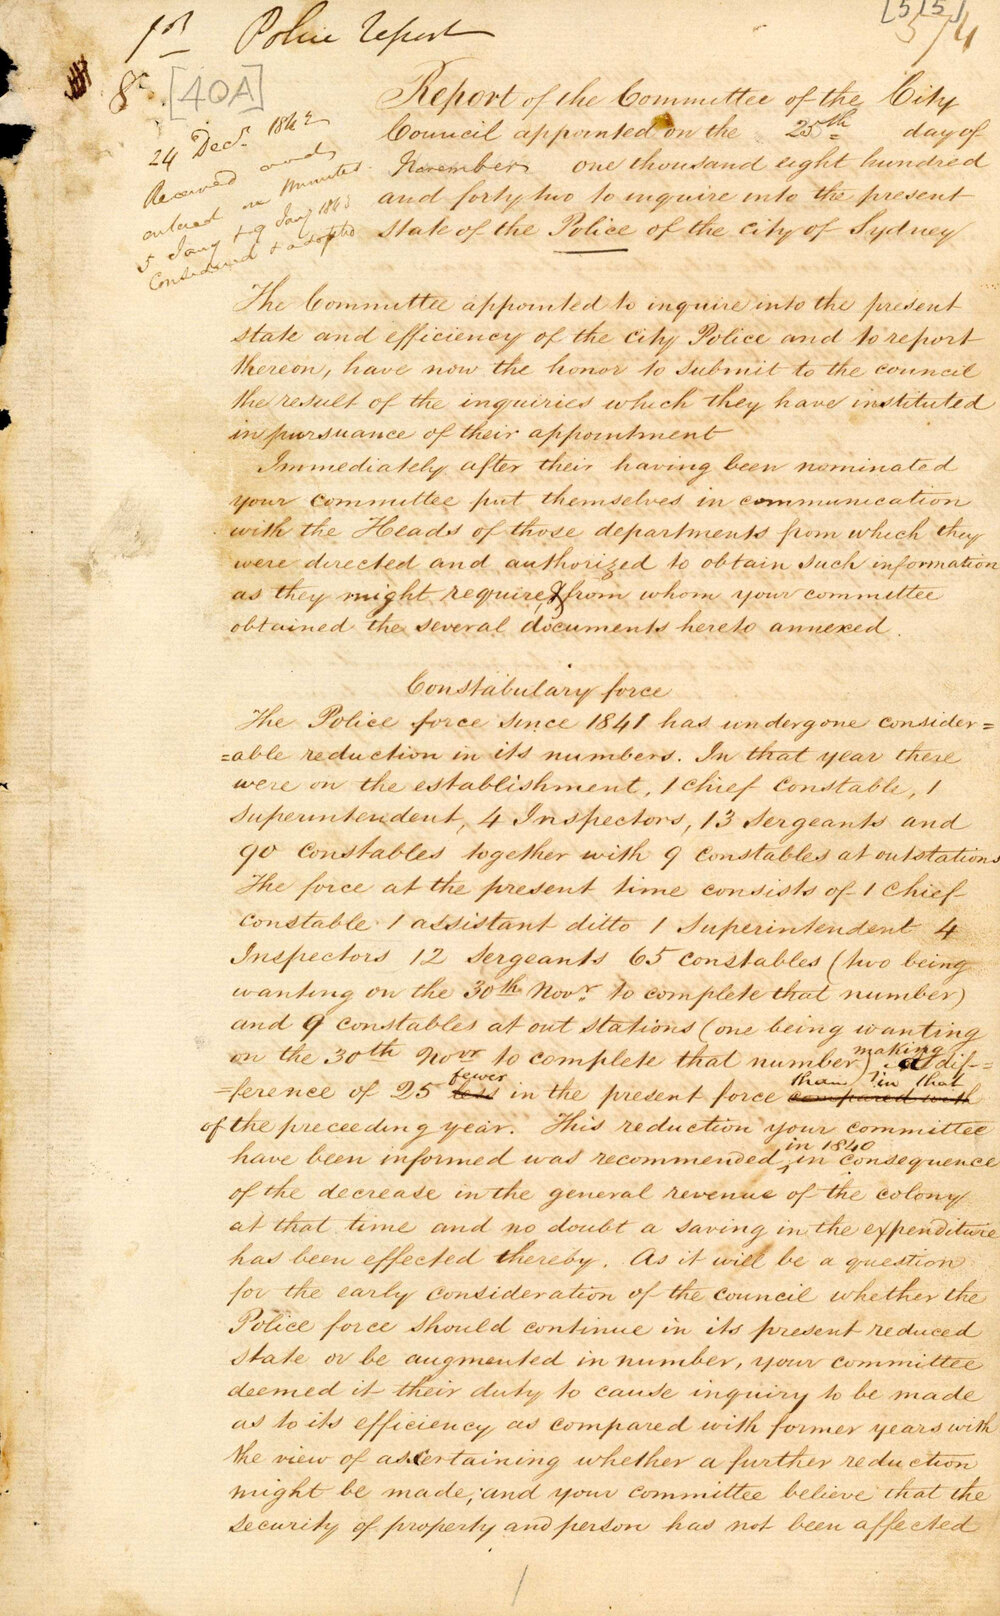 [515]
574
1st Police report
8c
[40A]
24 Decr. 1842
Received and
entered on Minutes.
5 Jany & 9 Jany 1843
Considered & adopted
Report of the Committee of the City
Council appointed on the 25th day of
November one thousand eight hundred
and forty two to inquire into the present
state of the Police of the city of Sydney
The Committee appointed to inquire into the present
state and efficiency of the city Police and to report
thereon, have now the honor to submit to the council
the result of the inquiries which they have instituted
in pursuance of their appointment
Immediately after their having been nominated
your committee put themselves in communication
with the Heads of those departments from which they
were directed and authorized to obtain such information
as they might require, & from whom your committee
obtained the several documents hereto annexed.
Constabulary force
The Police force since 1841 has undergone consider=
=able reduction in its numbers. In that year there
were on the establishment, 1 chief constable, 1
superintendent, 4 Inspectors, 13 sergeants and
90 constables together with 9 constables at outstations
The force at the present time consists of 1 chief
constable 1 assistant ditto 1 superintendent 4
Inspectors 12 sergeants 65 constables (two being
wanting on the 30th Novr. to complete that number)
and 9 constables at out stations (one being wanting
on the 30th Novr to complete that number) making a dif-=
=ference of 25 less fewer in the present force compared with than in that
of the preceeding year. This reduction your committee
have been informed was recommended, in 1840 in consequence
of the decrease in the general revenue of the colony
at that time and no doubt a saving in the expenditure
has been effected thereby. As it will be a question
for the early consideration of the council whether the
Police force should continue in its present reduced
state or be augmented in number, your committee
deemed it their duty to cause inquiry to be made
as to its efficiency as compared with former years with
the view of ascertaining whether a further reduction
might be made; and your committee believe that the
security of property and person has not been affected